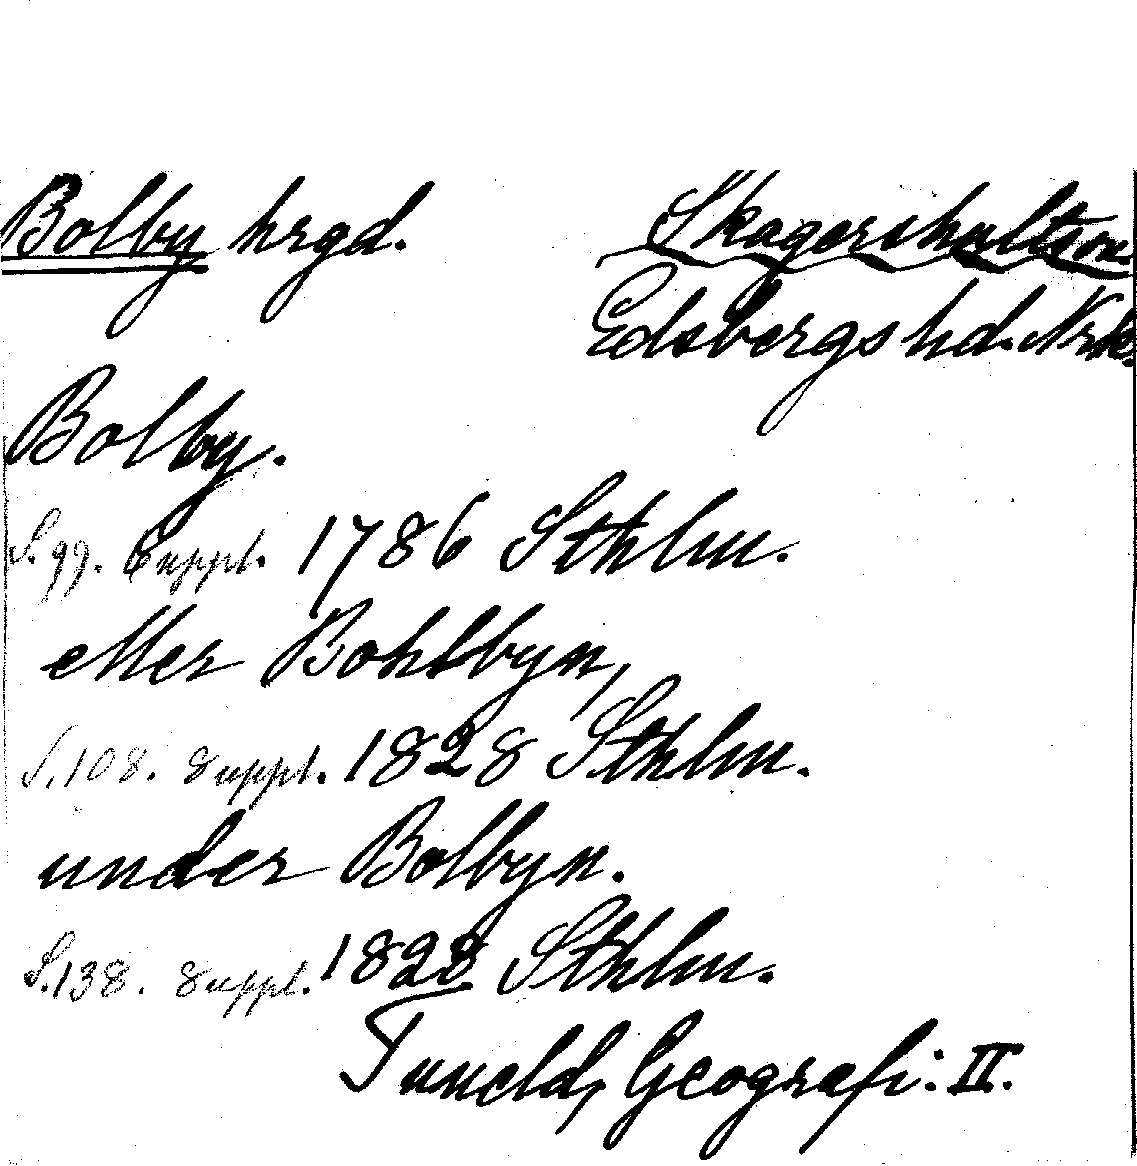 Bolby hrgd. Skagershults sn
Edsbergs hd. Nrk.
Bolby.
S. 99. Suppl. 1786 Sthlm.
eller Bohlbyn,
S. 108. Suppl. 1828 Sthlm.
under Bolbyn.
S. 138. Suppl. 1828 Sthlm.
Tuneld, Geografi: II.